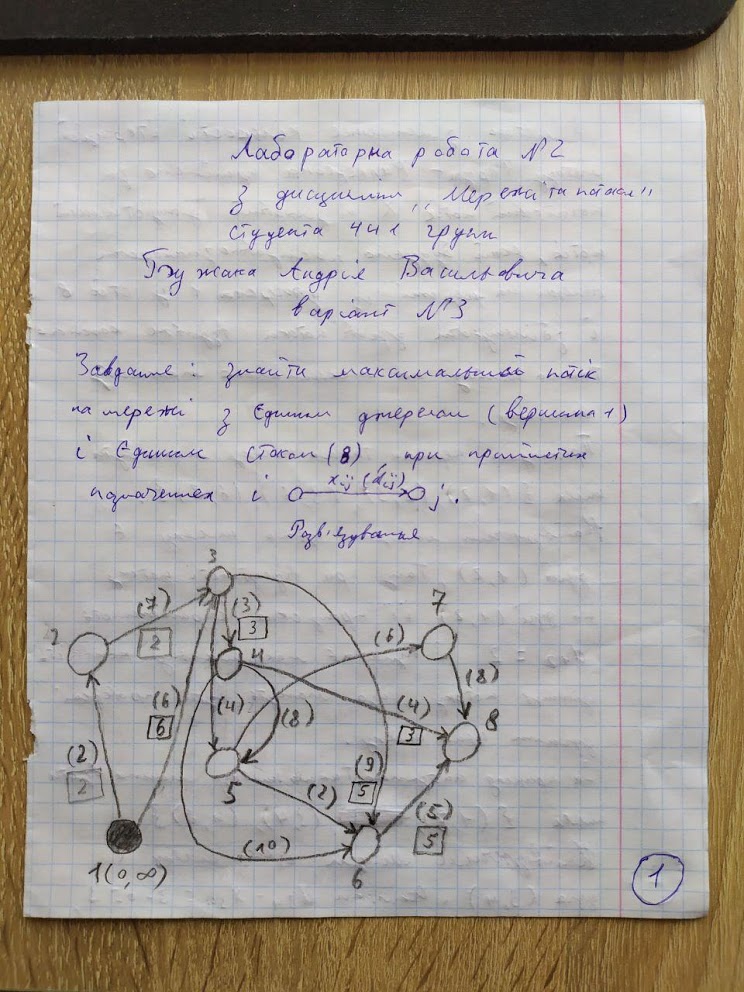 Лабораторна робота №2
з дисципліни „Мережі та потоки"
студента 441 групи
Андрія Васильовича
варіант №3
Завдання: знайти максимальний потік
на мережі з єдиним джерелом (вершина 1)
і єдиним стоком (8) при прийнятих
позначеннях i xij (dij) j.
Розв'язування
3
7
(7)
2
(3)
3
4
(6)
2
(6)
6
(4)
(8)
(4)
3
(8)
8
(2)
2
5
(2)
(9)
5
(5)
5
(10)
1(0,∞)
6
1